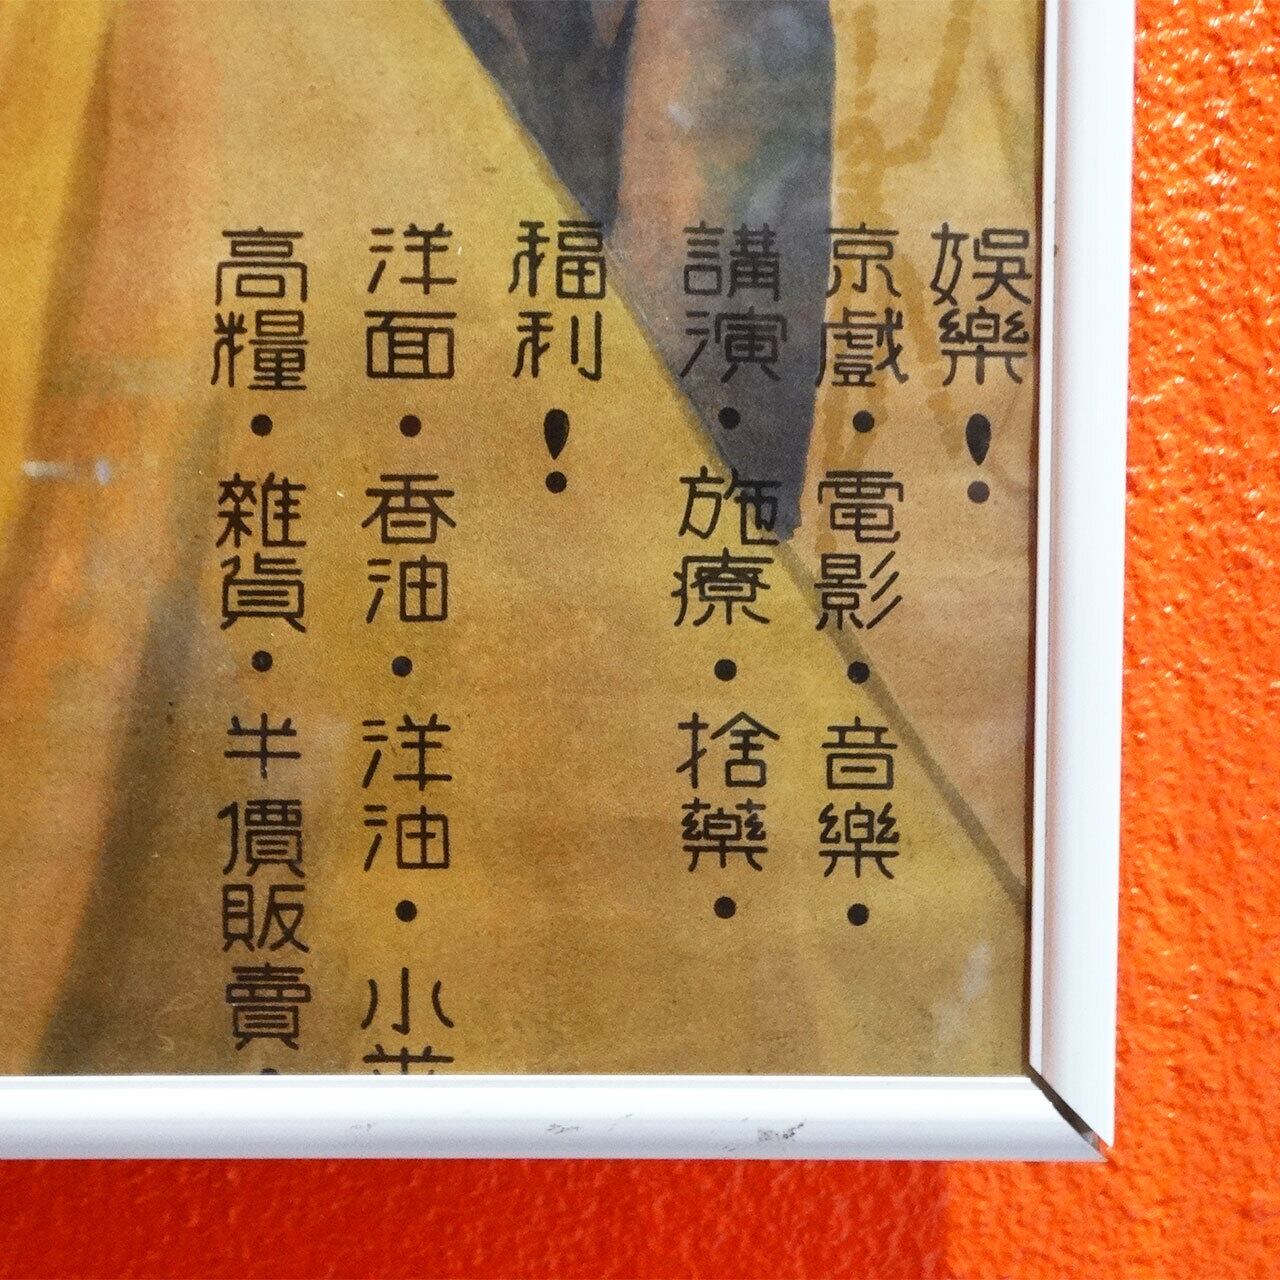 娛樂！
京戲・電影・音樂・
講演・施療・捨藥・
福利！
洋面・香油・洋油・小
高糧・雜貨・半價販賣・